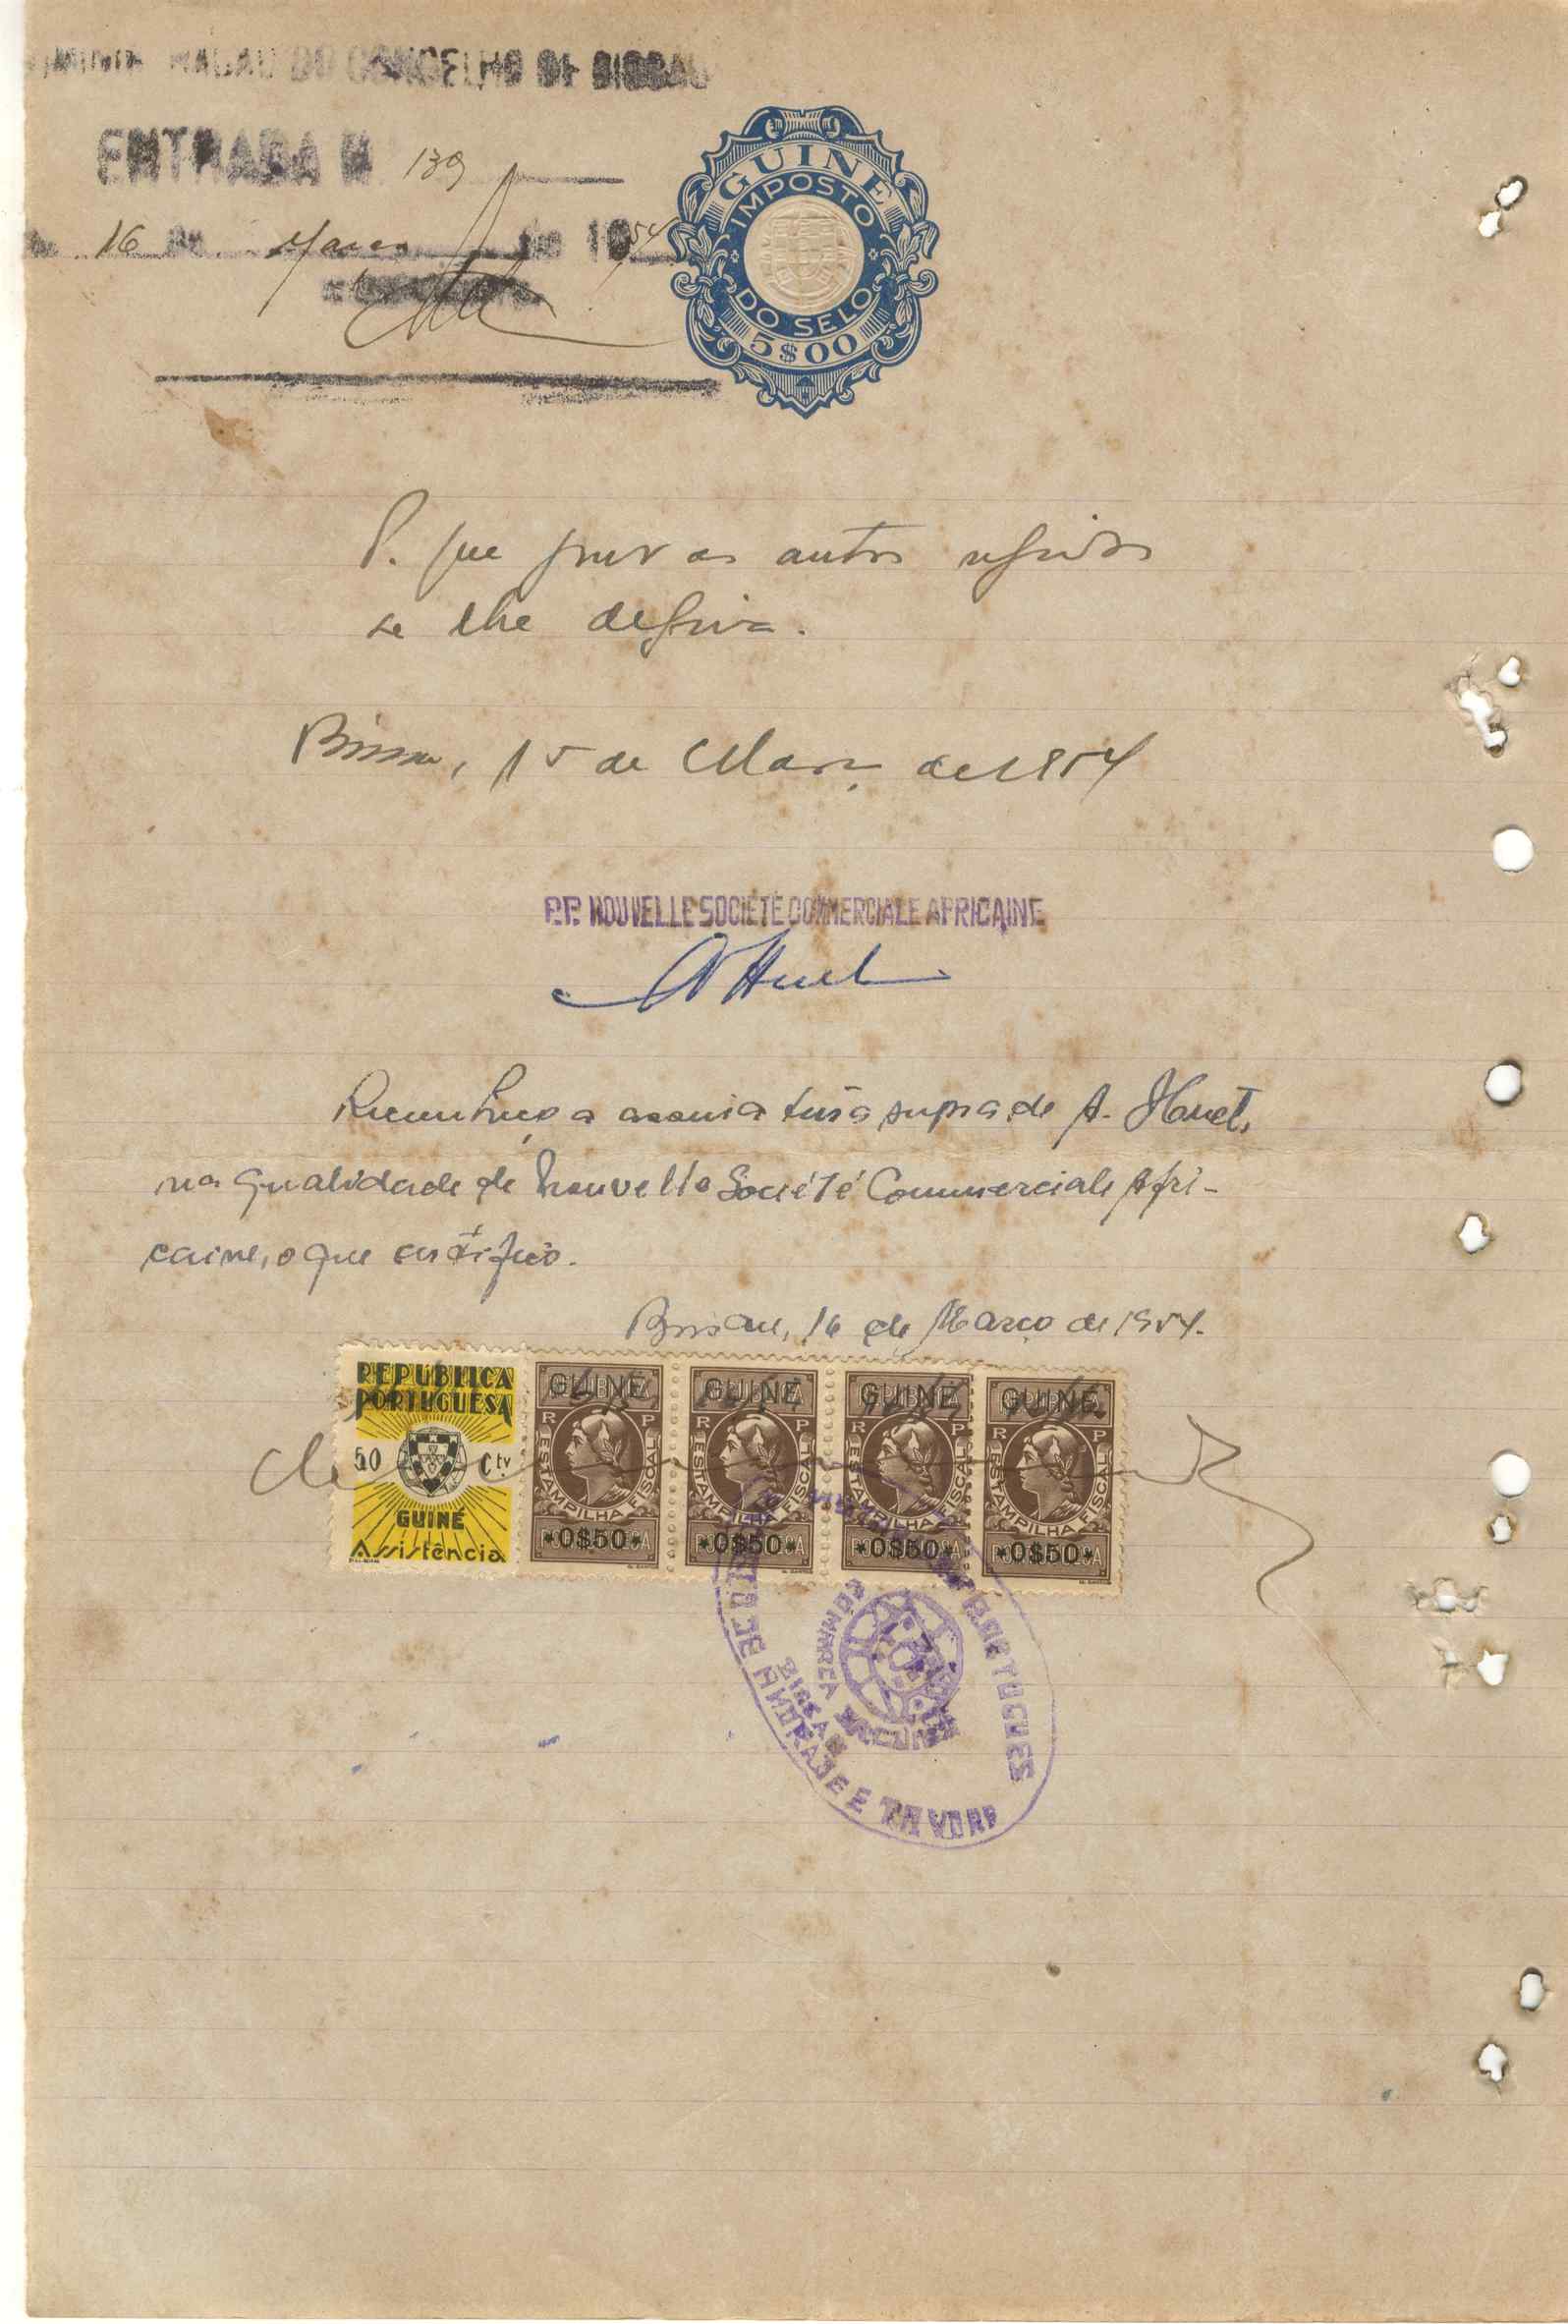 DO CONCELHO DE BISSAU
ENTRADA N 139
16 de Março de 1954
GUINÉ
IMPOSTO
DO SELO
5$00
P. que para os autos referidos
se lhe defira.
Bissau, 15 de Março de 1954
P.P. NOUVELLE SOCIÉTÉ COMMERCIALE AFRICAINE
A Huet
Reconheço a assinatura supra de A. Huet,
na qualidade de Nouvelle Société Commerciale Afri-
caine, o que certifico.
Bissau, 16 de Março de 1954.
REPÚBLICA
PORTUGUESA
50 Ctv
GUINÉ
Assistência
GUINÉ
R P
ESTAMPILHA FISCAL
*0$50*
GUINÉ
R P
ESTAMPILHA FISCAL
*0$50*
GUINÉ
R P
ESTAMPILHA FISCAL
*0$50*
GUINÉ
R P
ESTAMPILHA FISCAL
*0$50*
DE ANDRADE E TAVORA
COMARCA
BISSAU